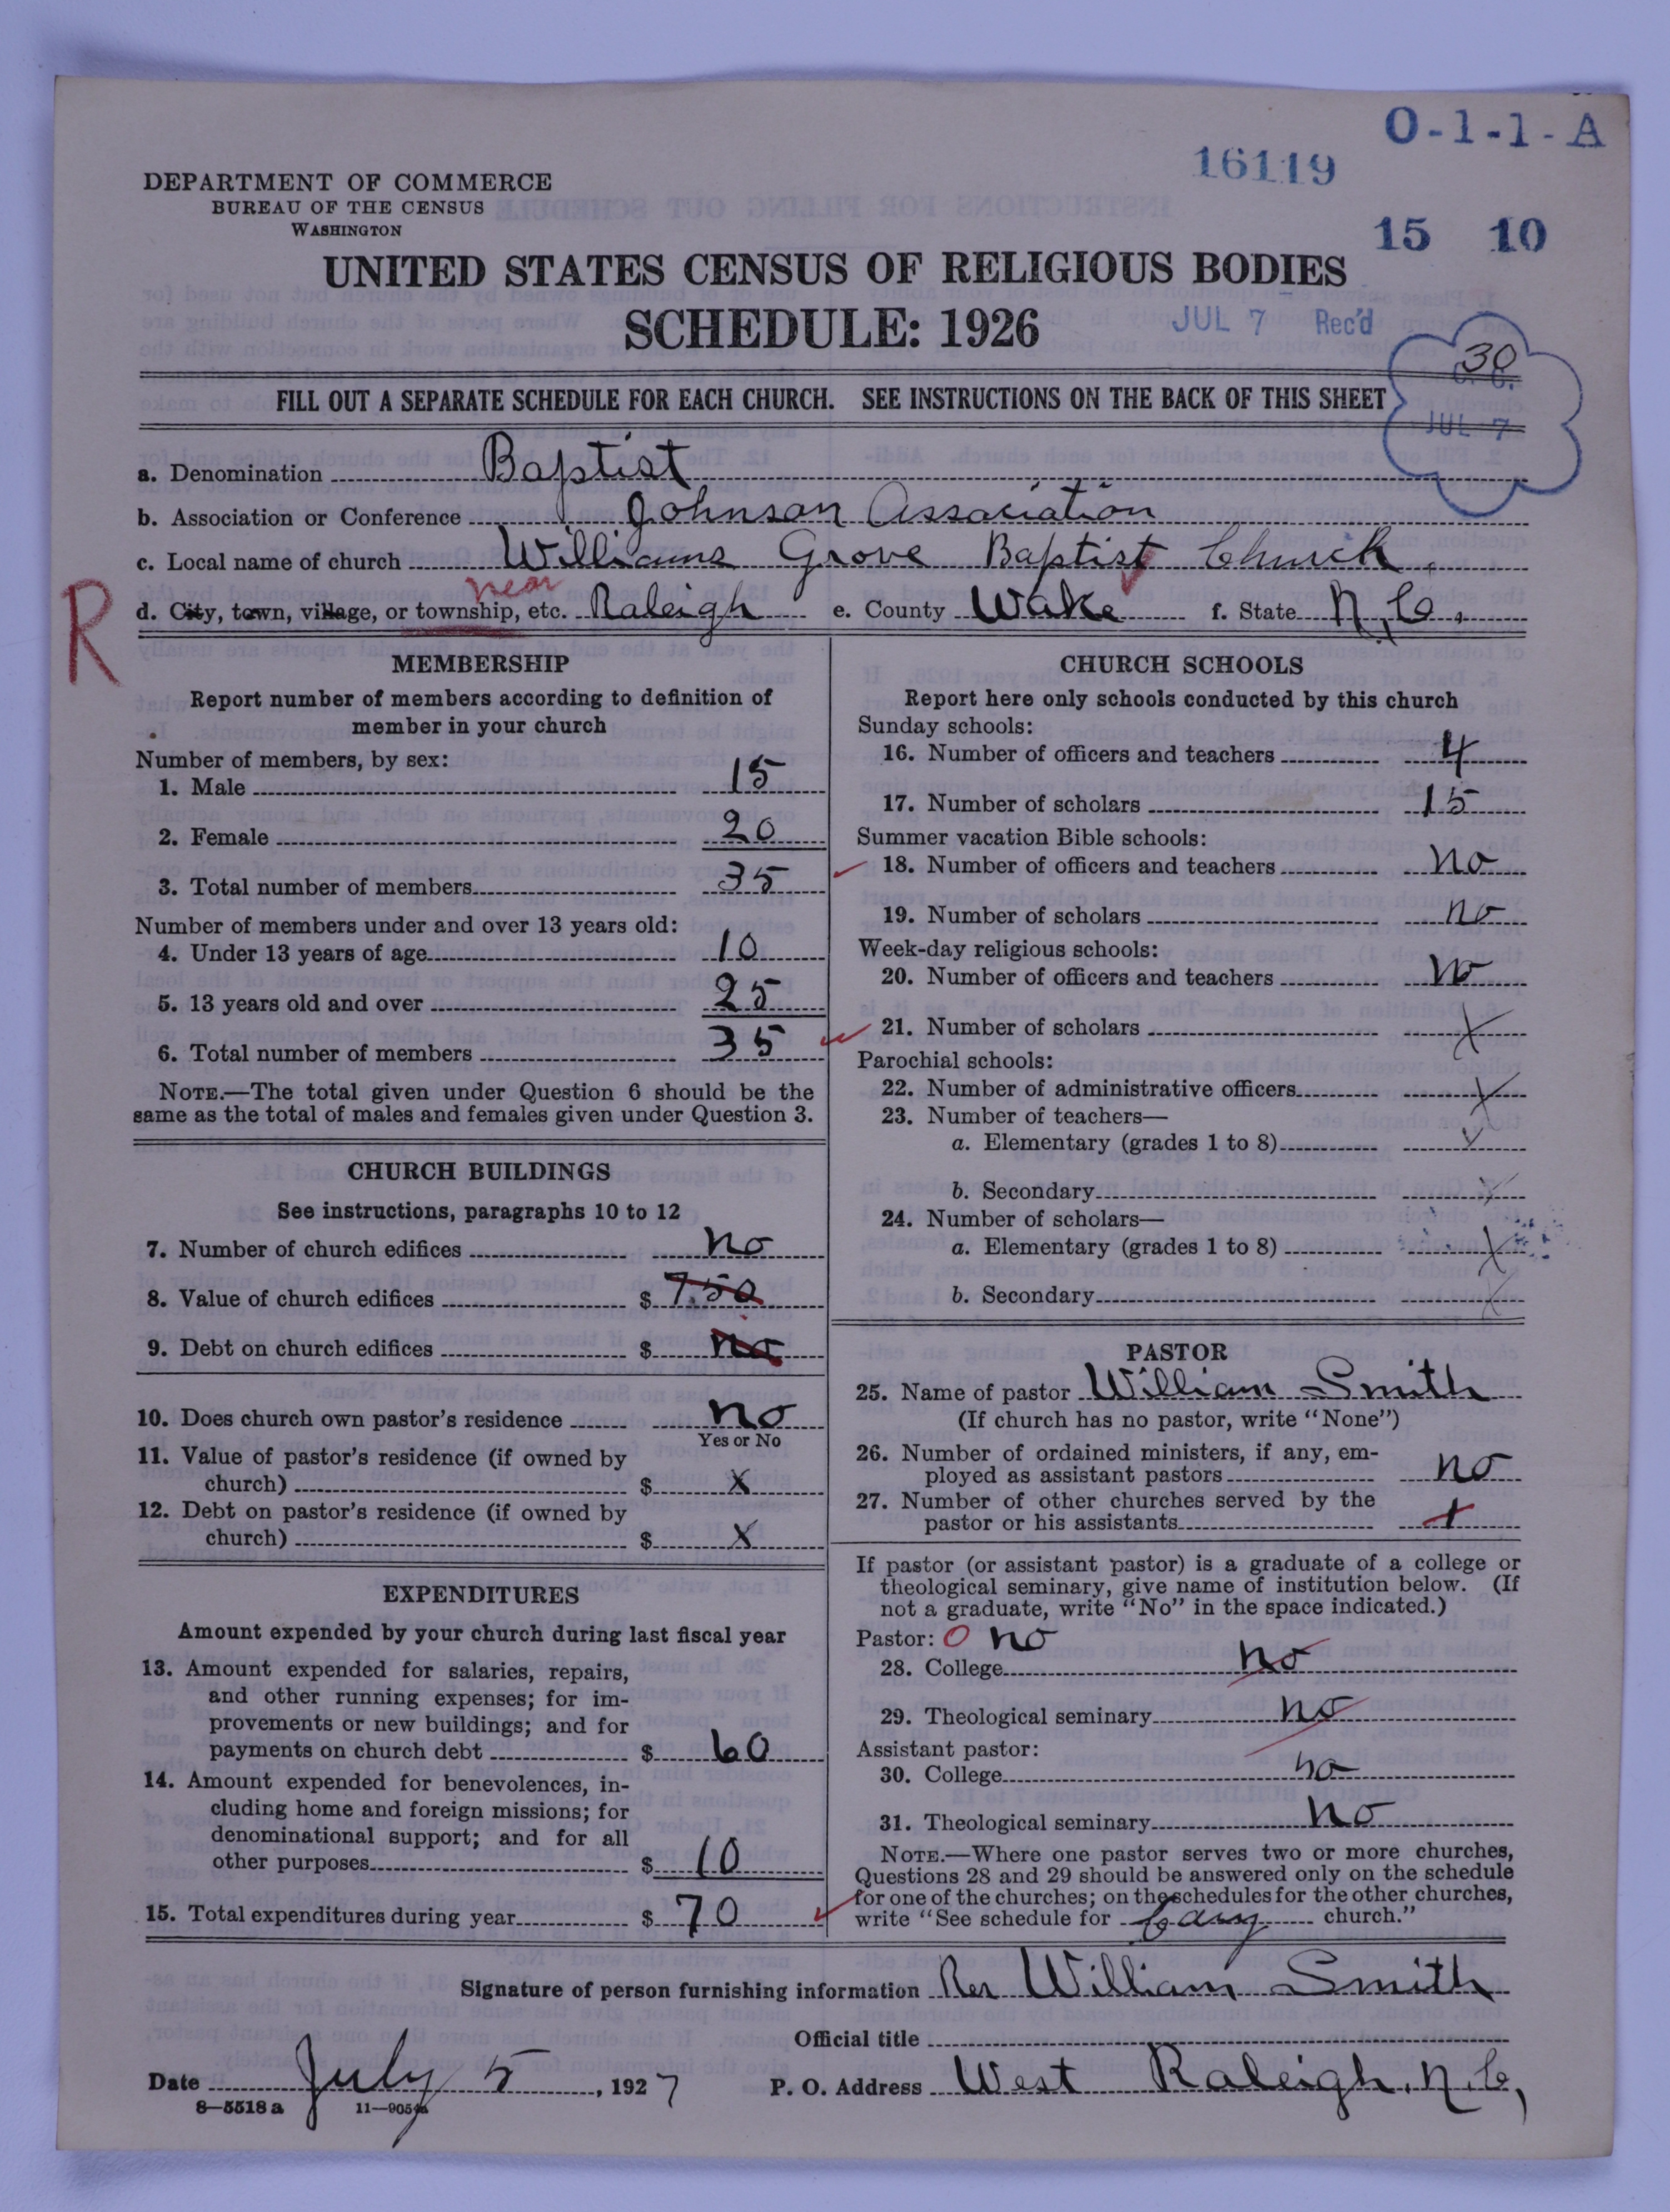 O-1-1-A
16119
DEPARTMENT OF COMMERCE
BUREAU OF THE CENSUS
WASHINGTON
15 10
UNITED STATES CENSUS OF RELIGIOUS BODIES
SCHEDULE: 1926
JUL 7 Rec'd
30
FILL OUT A SEPARATE SCHEDULE FOR EACH CHURCH. SEE INSTRUCTIONS ON THE BACK OF THIS SHEET
JUL 7
a. Denomination Baptist
b. Association or Conference Johnson Association
c. Local name of church Williams Grove Baptist Church
near
R
d. City, town, village, or township, etc. Raleigh e. County Wake f. State N.C.
MEMBERSHIP
Report number of members according to definition of
member in your church
Number of members, by sex:
1. Male 15
2. Female 20
3. Total number of members 35
Number of members under and over 13 years old:
4. Under 13 years of age 10
5. 13 years old and over 25
6. Total number of members 35
NOTE.—The total given under Question 6 should be the
same as the total of males and females given under Question 3.
CHURCH BUILDINGS
See instructions, paragraphs 10 to 12
7. Number of church edifices no
8. Value of church edifices $ 750
9. Debt on church edifices $ no
10. Does church own pastor's residence no
Yes or No
11. Value of pastor's residence (if owned by
church) $ X
12. Debt on pastor's residence (if owned by
church) $ X
EXPENDITURES
Amount expended by your church during last fiscal year
13. Amount expended for salaries, repairs,
and other running expenses; for im-
provements or new buildings; and for
payments on church debt $ 60
14. Amount expended for benevolences, in-
cluding home and foreign missions; for
denominational support; and for all
other purposes $ 10
15. Total expenditures during year $ 70
CHURCH SCHOOLS
Report here only schools conducted by this church
Sunday schools:
16. Number of officers and teachers 4
17. Number of scholars 15
Summer vacation Bible schools:
18. Number of officers and teachers no
19. Number of scholars no
Week-day religious schools:
20. Number of officers and teachers no
21. Number of scholars X
Parochial schools:
22. Number of administrative officers X
23. Number of teachers—
a. Elementary (grades 1 to 8) X
b. Secondary X
24. Number of scholars—
a. Elementary (grades 1 to 8) X
b. Secondary X
PASTOR
25. Name of pastor William Smith
(If church has no pastor, write "None")
26. Number of ordained ministers, if any, em-
ployed as assistant pastors no
27. Number of other churches served by the
pastor or his assistants
If pastor (or assistant pastor) is a graduate of a college or
theological seminary, give name of institution below. (If
not a graduate, write "No" in the space indicated.)
Pastor: O no
28. College no
29. Theological seminary no
Assistant pastor:
30. College no
31. Theological seminary no
NOTE.—Where one pastor serves two or more churches,
Questions 28 and 29 should be answered only on the schedule
for one of the churches; on the schedules for the other churches,
write "See schedule for Cary church."
Signature of person furnishing information Rev William Smith
Official title
Date July 5, 1927 P. O. Address West Raleigh, N.C,
8—5518 a 11—9054